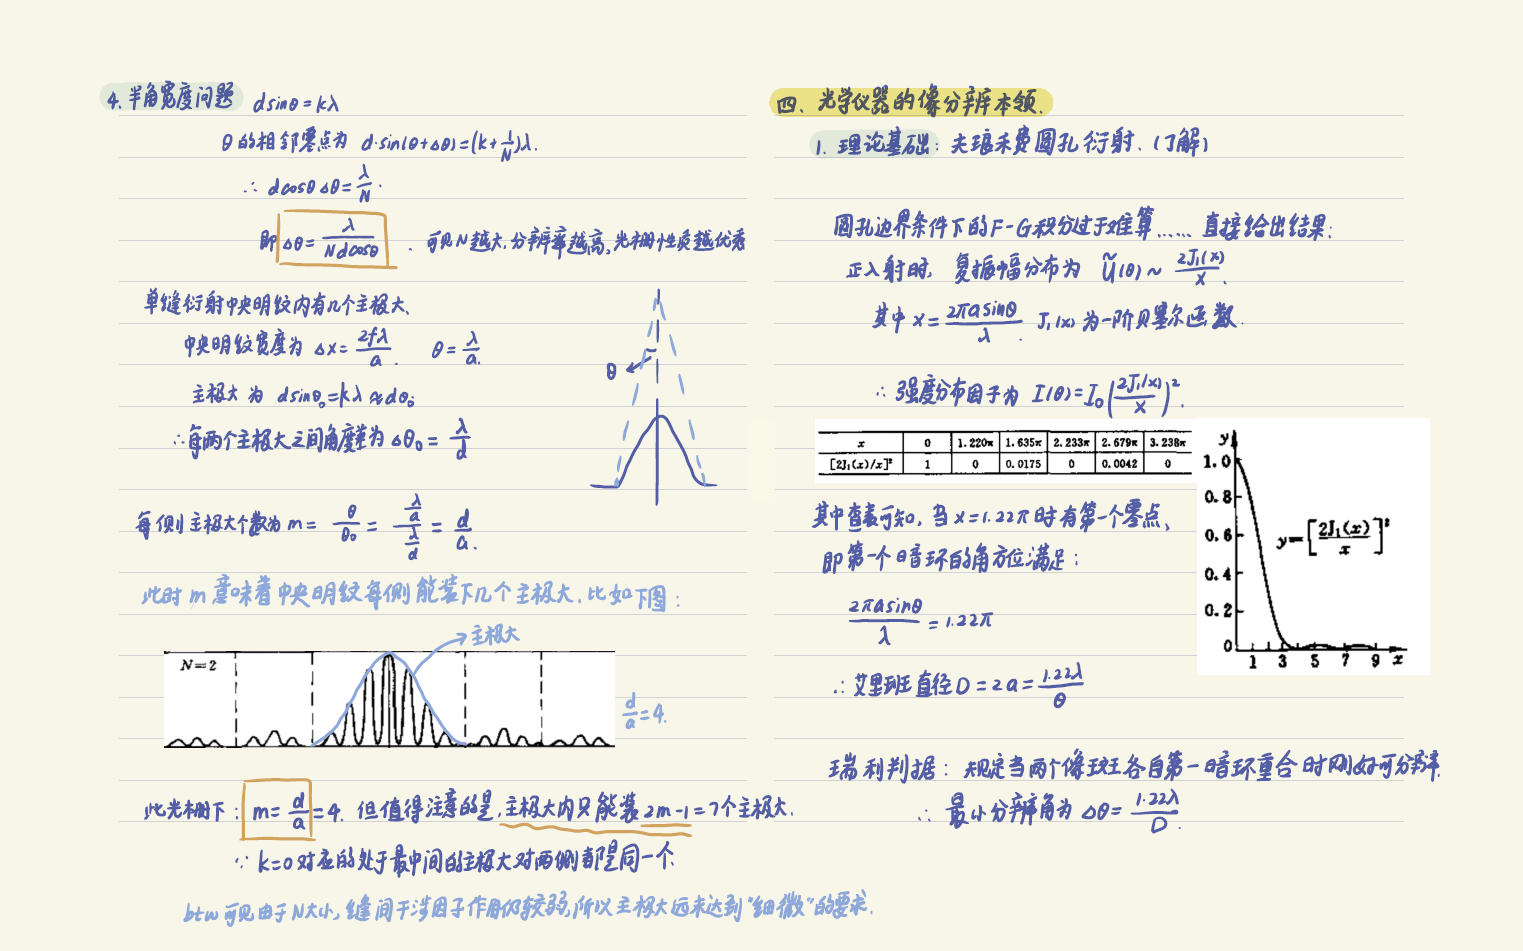 4. 半角宽度问题 dsinθ=kλ
θ的相邻零点为 d·sin(θ+Δθ)=(k+1/N)λ.
∴ dcosθ Δθ=λ/N.
即 Δθ=λ/(Ndcosθ) . 可见N越大,分辨率越高,光栅性质越优秀
单缝衍射中央明纹内有几个主极大、
中央明纹宽度为 Δx=2fλ/a. θ=λ/a.
主极大为 dsinθ₀=kλ≈dθ₀
∴每两个主极大之间角度差为 Δθ₀=λ/d
θ
每侧主极大个数为 m=θ/θ₀=(λ/a)/(λ/d)=d/a.
此时m意味着中央明纹每侧能装下几个主极大.比如下图:
主极大
N=2
d/a=4.
此光栅下: m=d/a=4. 但值得注意的是,主极大内只能装2m-1=7个主极大.
∵ k=0对应的处于最中间的主极大对两侧都是同一个.
btw 可见由于N太小,缝间干涉因子作用仍较弱,所以主极大远未达到"细微"的要求.
四、光学仪器的像分辨本领.
1. 理论基础: 夫琅禾费圆孔衍射.(了解)
圆孔边界条件下的F-G积分过于难算......直接给出结果:
正入射时, 复振幅分布为 Ũ(θ)~2J₁(x)/x.
其中 x=2πasinθ/λ. J₁(x)为一阶贝塞尔函数.
∴强度分布因子为 I(θ)=I₀(2J₁(x)/x)².
x 0 1.220π 1.635π 2.233π 2.679π 3.238π
[2J₁(x)/x]² 1 0 0.0175 0 0.0042 0
y
1.0
0.8
0.6
0.4
0.2
0
y=[2J₁(x)/x]²
1 3 5 7 9 x
其中查表可知, 当x=1.22π时有第一个零点、
即第一个暗环的角方位满足:
2πasinθ/λ=1.22π
∴艾里斑直径D=2a=1.22λ/θ
瑞利判据: 规定当两个像斑各自第一暗环重合时刚好可分辨.
∴ 最小分辨角为 Δθ=1.22λ/D.